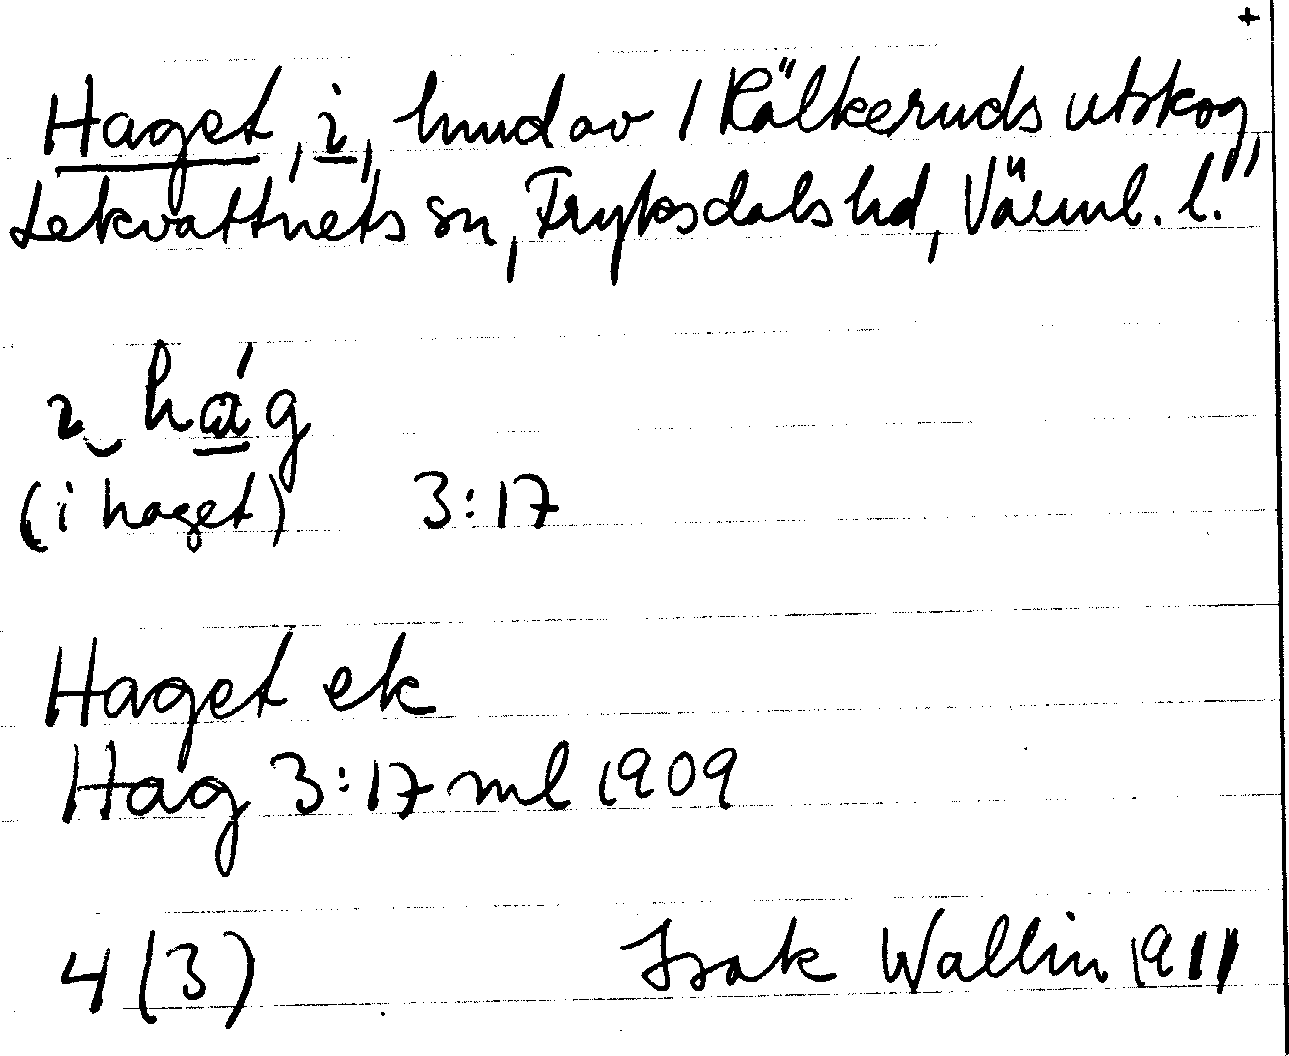 +
Haget, i, hmd av 1 Rälkeruds utskog,
Lekvattnets sn, Fryksdals hd, Värml. l."
ɩ‿hág
(i haget) 3:17
Haget ek
Hag 3:17 ml 1909
4 (3) Isak Wallin 1911